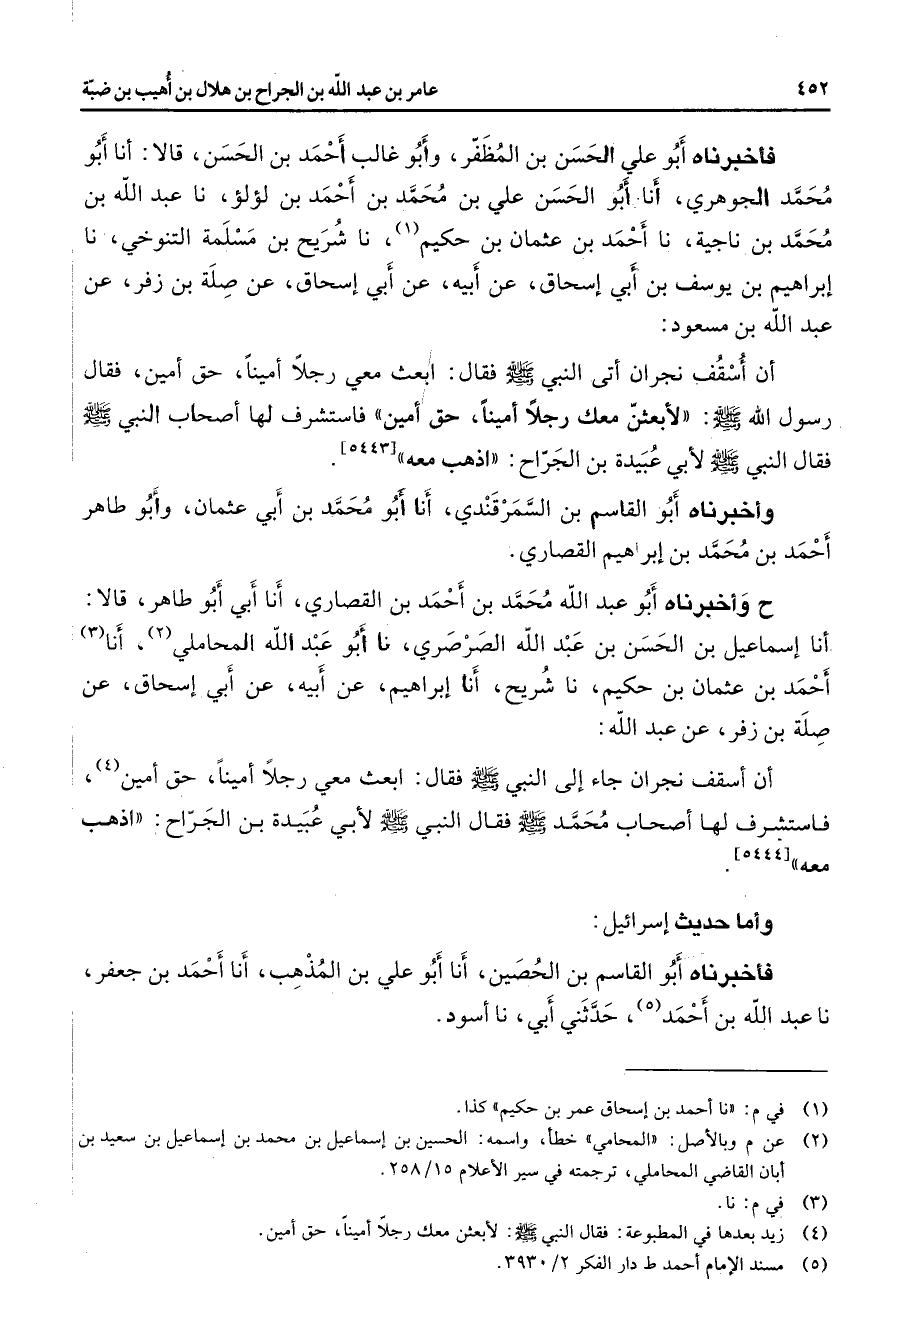 ٤٥٢ عامر بن عبد اللّه بن الجراح بن هلال بن أُهيب بن ضبّة
فأخبرناه أَبُو علي الحَسَن بن المُظَفّر، وأَبُو غالب أَحْمَد بن الحَسَن، قالا: أنا أَبُو
مُحَمَّد الجوهري، أَنا أَبُو الحَسَن علي بن مُحَمَّد بن أَحْمَد بن لؤلؤ، نا عبد اللّه بن
مُحَمَّد بن ناجية، نا أَحْمَد بن عثمان بن حكيم(١)، نا شُرَيح بن مَسْلَمة التنوخي، نا
إبراهيم بن يوسف بن أَبي إسحاق، عن أَبيه، عن أَبي إسحاق، عن صِلَة بن زفر، عن
عبد اللّه بن مسعود:
أن أُسْقُف نجران أتى النبي ﷺ فقال: ابعث معي رجلاً أميناً، حق أمين، فقال
رسول الله ﷺ: «لأبعثنّ معك رجلاً أميناً، حق أمين» فاستشرف لها أصحاب النبي ﷺ
فقال النبي ﷺ لأبي عُبَيدة بن الجَرّاح: «اذهب معه»[٥٤٤٣].
وأخبرناه أَبُو القاسم بن السَّمَرْقَندي، أَنا أَبُو مُحَمَّد بن أَبي عثمان، وأَبُو طاهر
أَحْمَد بن مُحَمَّد بن إبراهيم القصاري.
ح وَأخبرناه أَبُو عبد اللّه مُحَمَّد بن أَحْمَد بن القصاري، أَنا أَبي أَبُو طاهر، قالا:
أنا إسماعيل بن الحَسَن بن عَبْد اللّه الصَرْصَري، نا أَبُو عَبْد اللّه المحاملي(٢)، أَنا(٣)
أَحْمَد بن عثمان بن حكيم، نا شُريح، أَنا إبراهيم، عن أَبيه، عن أَبي إسحاق، عن
صِلَة بن زفر، عن عبد اللّه:
أن أسقف نجران جاء إلى النبي ﷺ فقال: ابعث معي رجلاً أميناً، حق أمين(٤)،
فاستشرف لها أصحاب مُحَمَّد ﷺ فقال النبي ﷺ لأبي عُبَيدة بن الجَرّاح: «اذهب
معه»[٥٤٤٤].
وأما حديث إسرائيل:
فأخبرناه أَبُو القاسم بن الحُصَين، أَنا أَبُو علي بن المُذْهِب، أَنا أَحْمَد بن جعفر،
نا عبد اللّه بن أَحْمَد(٥)، حَدَّثَني أَبي، نا أسود.
(١) في م: «نا أحمد بن إسحاق عمر بن حكيم» كذا.
(٢) عن م وبالأصل: «المحامي» خطأ، واسمه: الحسين بن إسماعيل بن محمد بن إسماعيل بن سعيد بن
أبان القاضي المحاملي، ترجمته في سير الأعلام ١٥/ ٢٥٨.
(٣) في م: نا.
(٤) زيد بعدها في المطبوعة: فقال النبي ﷺ: لأبعثن معك رجلاً أميناً، حق أمين.
(٥) مسند الإمام أحمد ط دار الفكر ٢/ ٣٩٣٠.